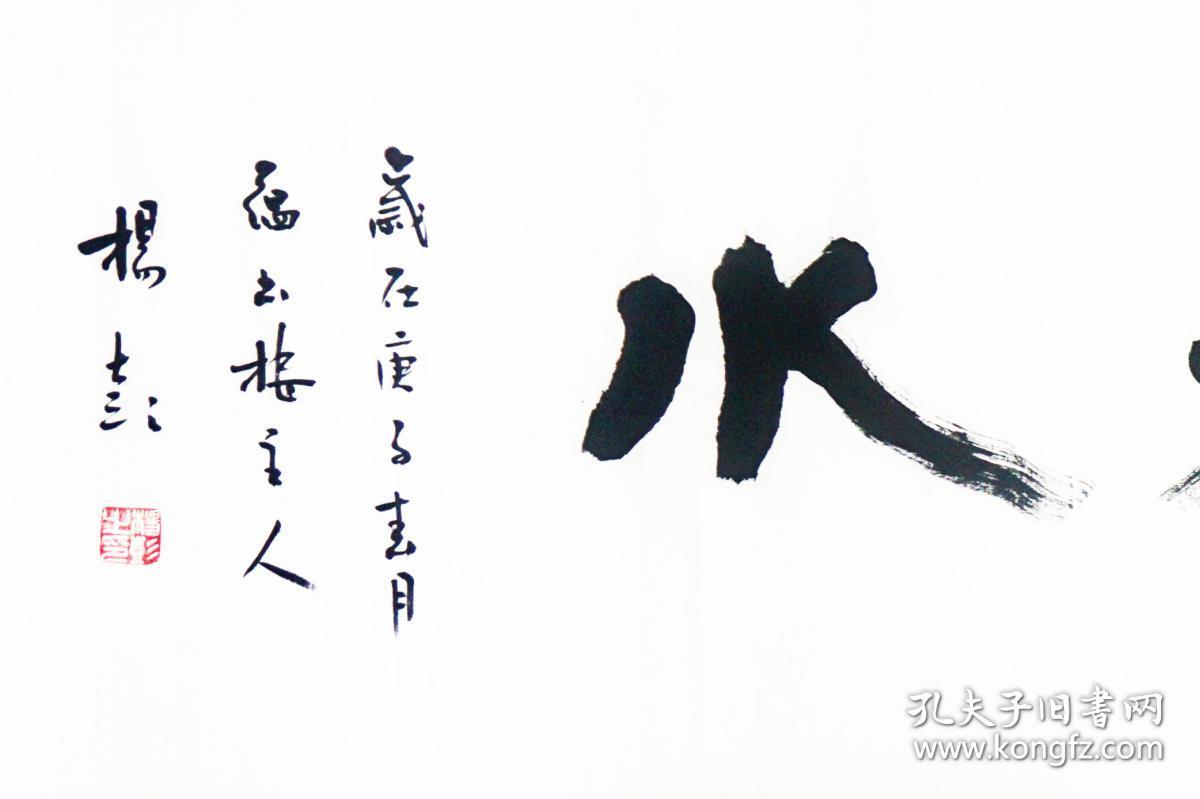 水
歲在庚子春月
蘊書樓主人
楊彭
孔夫子旧書网
www.kongfz.com